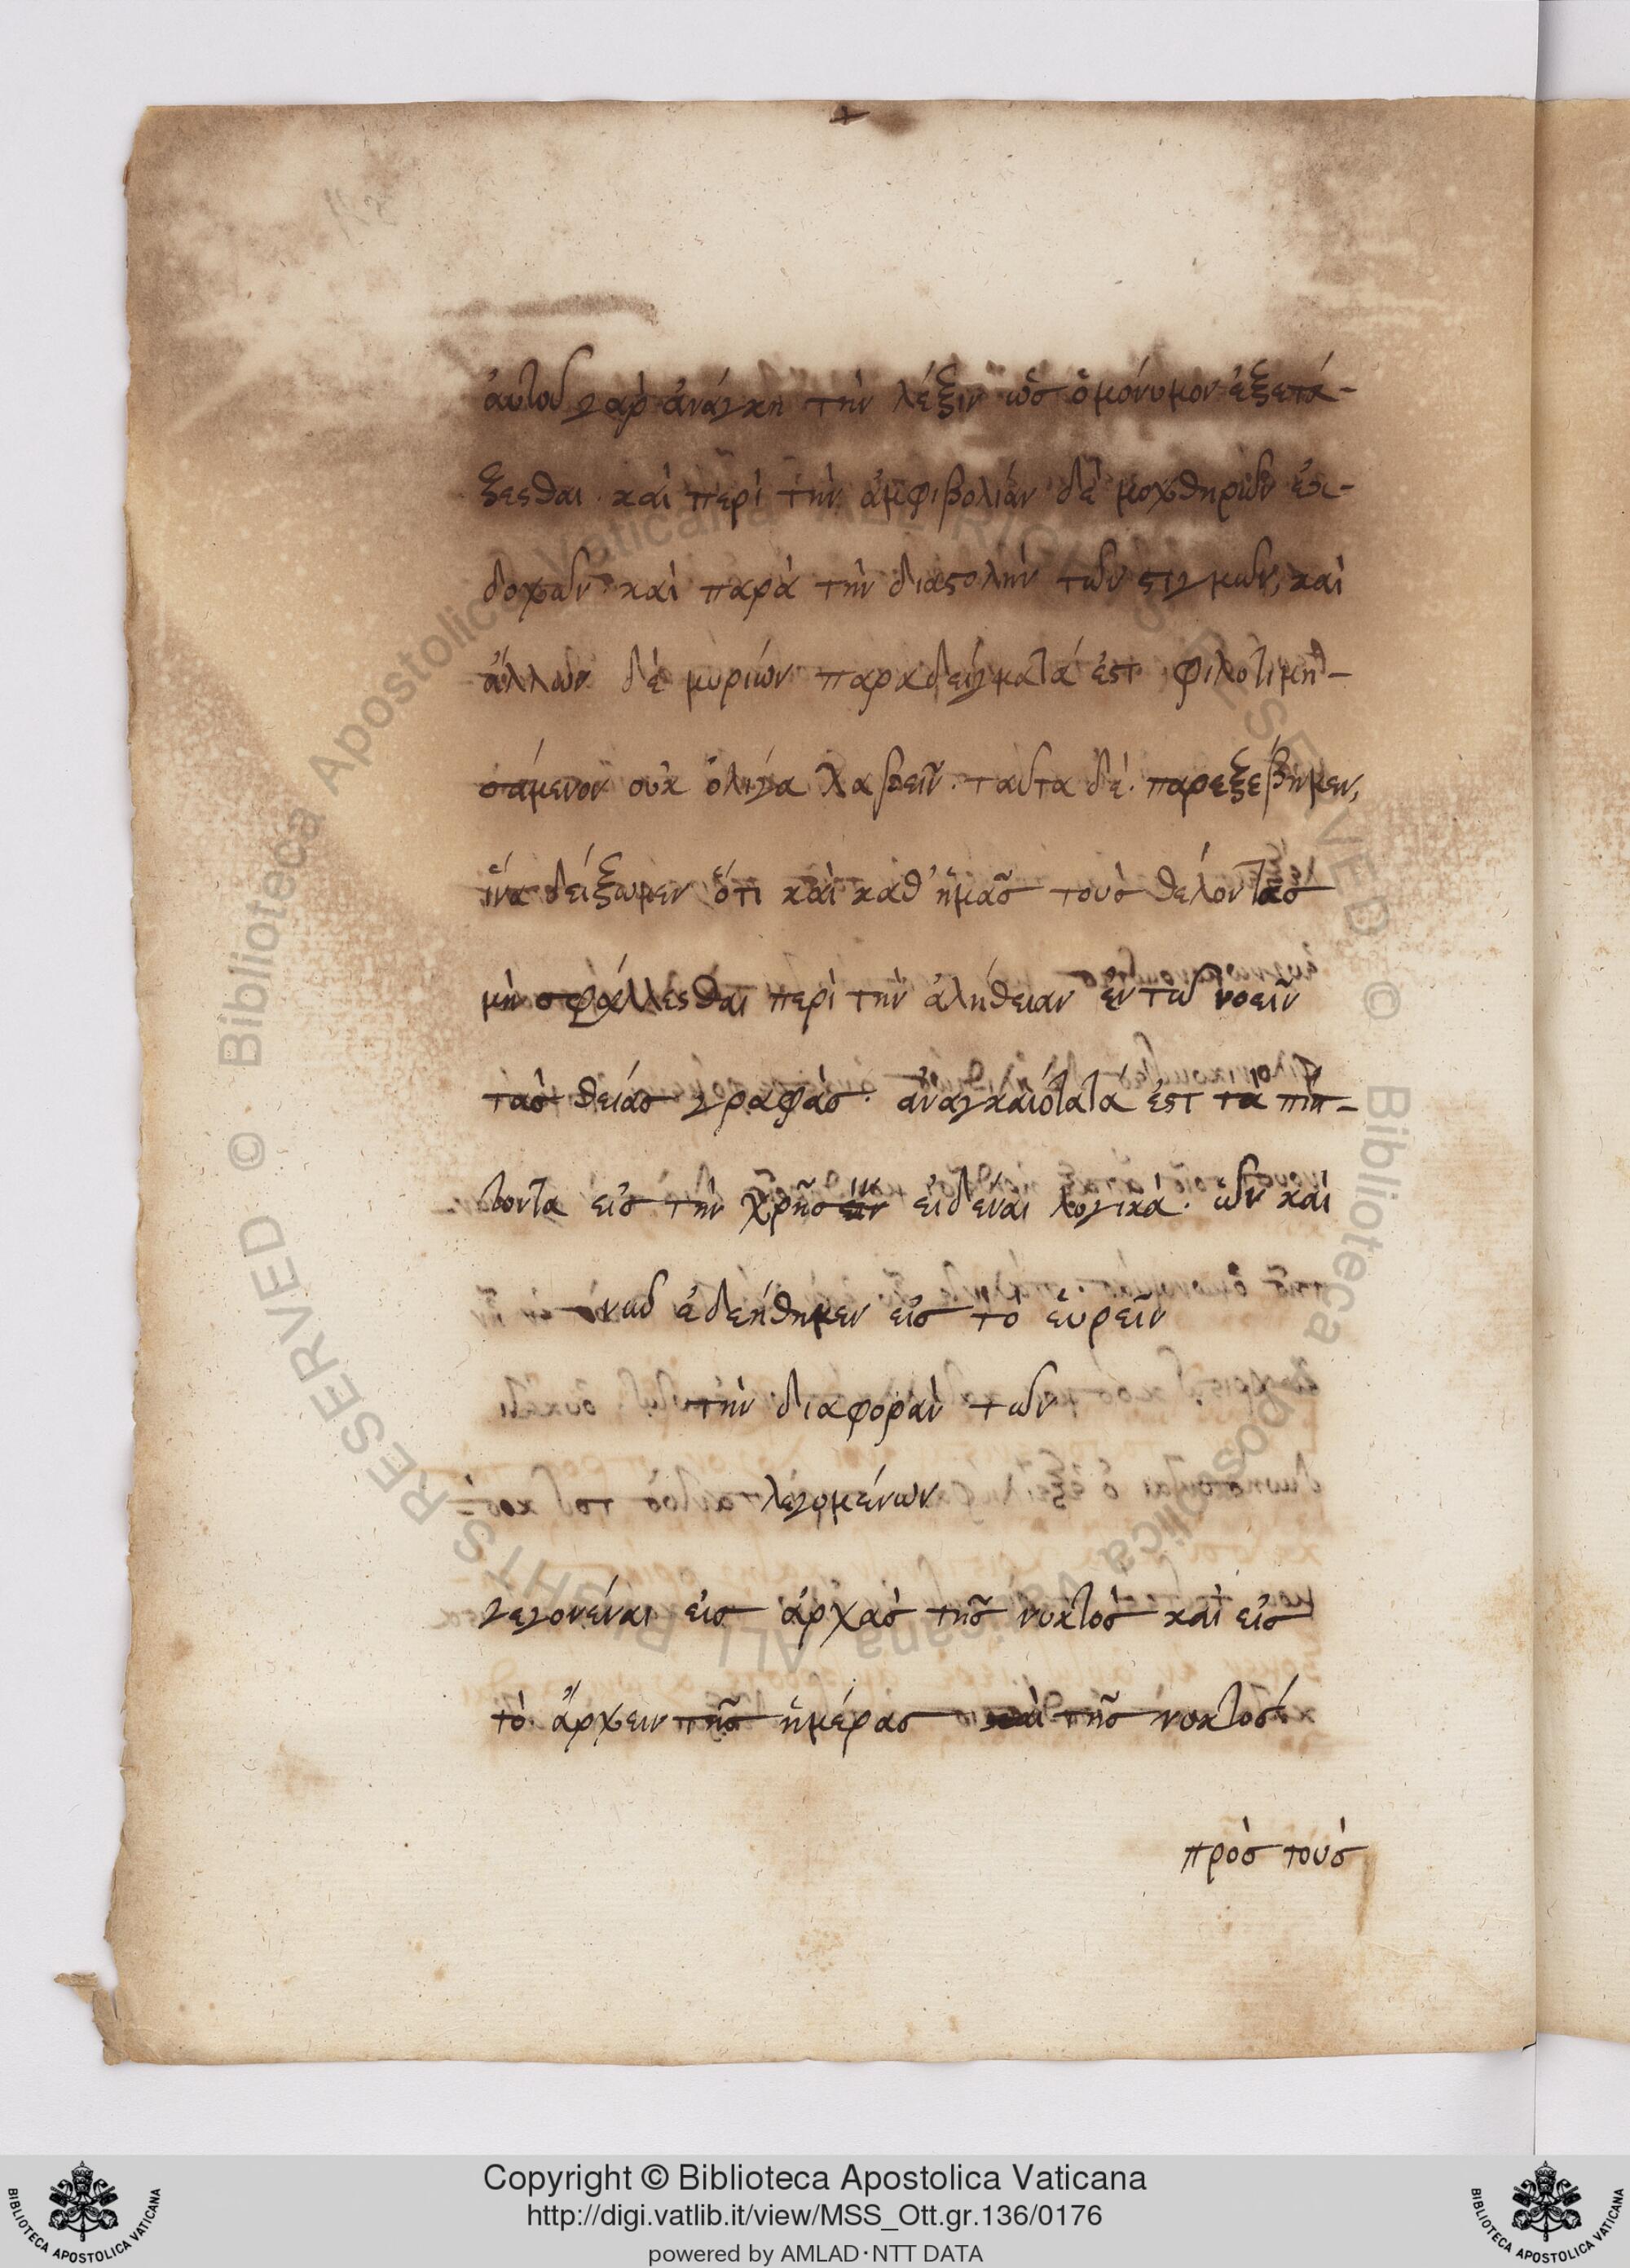 ἀυτοῦ γὰρ ἀνάγκη τὴν λέξιν ὡς ὁμόνυμον ἐξετά-
ξεσθαι. καὶ περὶ τὴν ἀμφιβολιάν δὲ μοχθηρῶν ἐκ-
δοχῶν καὶ παρὰ τὴν διαστολὴν τῶν στιγμῶν, καὶ
ἄλλων δὲ μυριών παραδείγματά ἐστ φιλοτιμη-
σάμενον οὐκ ὀλίγα λαβεῖν. ταῦτα δὲ παρεξέβημεν,
ἵνα δείξωμεν ὅτι καὶ καθ' ἡμᾶς τοὺς θελόντας
μὴ σφάλλεσθαι περὶ τὴν ἀλήθειαν ἐν τῶ νοεῖν
τὰς θείας γραφὰς. ἀναγκαιότατά ἐστ τα πίπ-
τοντα εἰς τὴν χρῆσιν εἰδέναι λογικά. ὧν καὶ
νῦν ἐδεήθημεν εἰς τὸ εὑρεῖν
τὴν διαφορὰν τῶν
λεγομένων
γεγονέναι εἰς ἀρχὰς τῆς νυκτὸς καὶ εἰς
τὸ ἄρχειν τῆς ἡμέρας καὶ τῆς νυκτός
πρὸς τοὺς
Copyright © Biblioteca Apostolica Vaticana
http://digi.vatlib.it/view/MSS_Ott.gr.136/0176
powered by AMLAD·NTT DATA
BIBLIOTECA APOSTOLICA VATICANA
BIBLIOTECA APOSTOLICA VATICANA
© Biblioteca Apostolica Vaticana ALL RIGHTS RESERVED
© Biblioteca Apostolica Vaticana ALL RIGHTS RESERVED